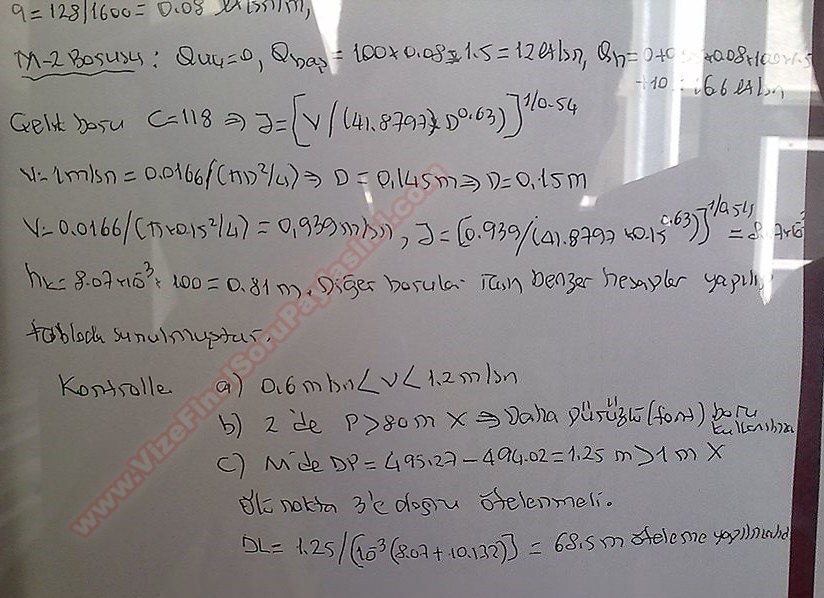 q = 128/1600 = 0.08 lt/sn/m,
M-2 Borusu: Quç=0, Qbaş = 100*0.08*1.5 = 12 lt/sn, Qh = 0+0.55*0.08*100*1.5
+10 = 16.6 lt/sn
Çelik boru C=118 ⇒ J = [V/(41.8797*D^0.63)]^1/0.54
V=1m/sn = 0.0166/(πD²/4) ⇒ D = 0.145m ⇒ D=0.15m
V=0.0166/(π*0.15²/4) = 0,939 m/sn, J = [0.939/(41.8797*0.15^0.63)]^1/0.54 = 8.07*10^-3
hk = 8.07*10^-3 * 100 = 0.81 m. Diğer borular için benzer hesaplar yapılıp
tabloda sunulmuştur.
Kontroller a) 0.6 m/sn < V < 1.2 m/sn
b) 2'de P>80m X ⇒ Daha pürüzlü (font) boru
kullanılmalı
c) M'de DP = 495.27 - 494.02 = 1.25 m > 1 m X
Ölü nokta 3'e doğru ötelenmeli.
DL = 1.25/(10^-3(8.07+10.132)) = 68.5 m öteleme yapılmalıdır
www.VizeFinalSoruPaylasimi.com